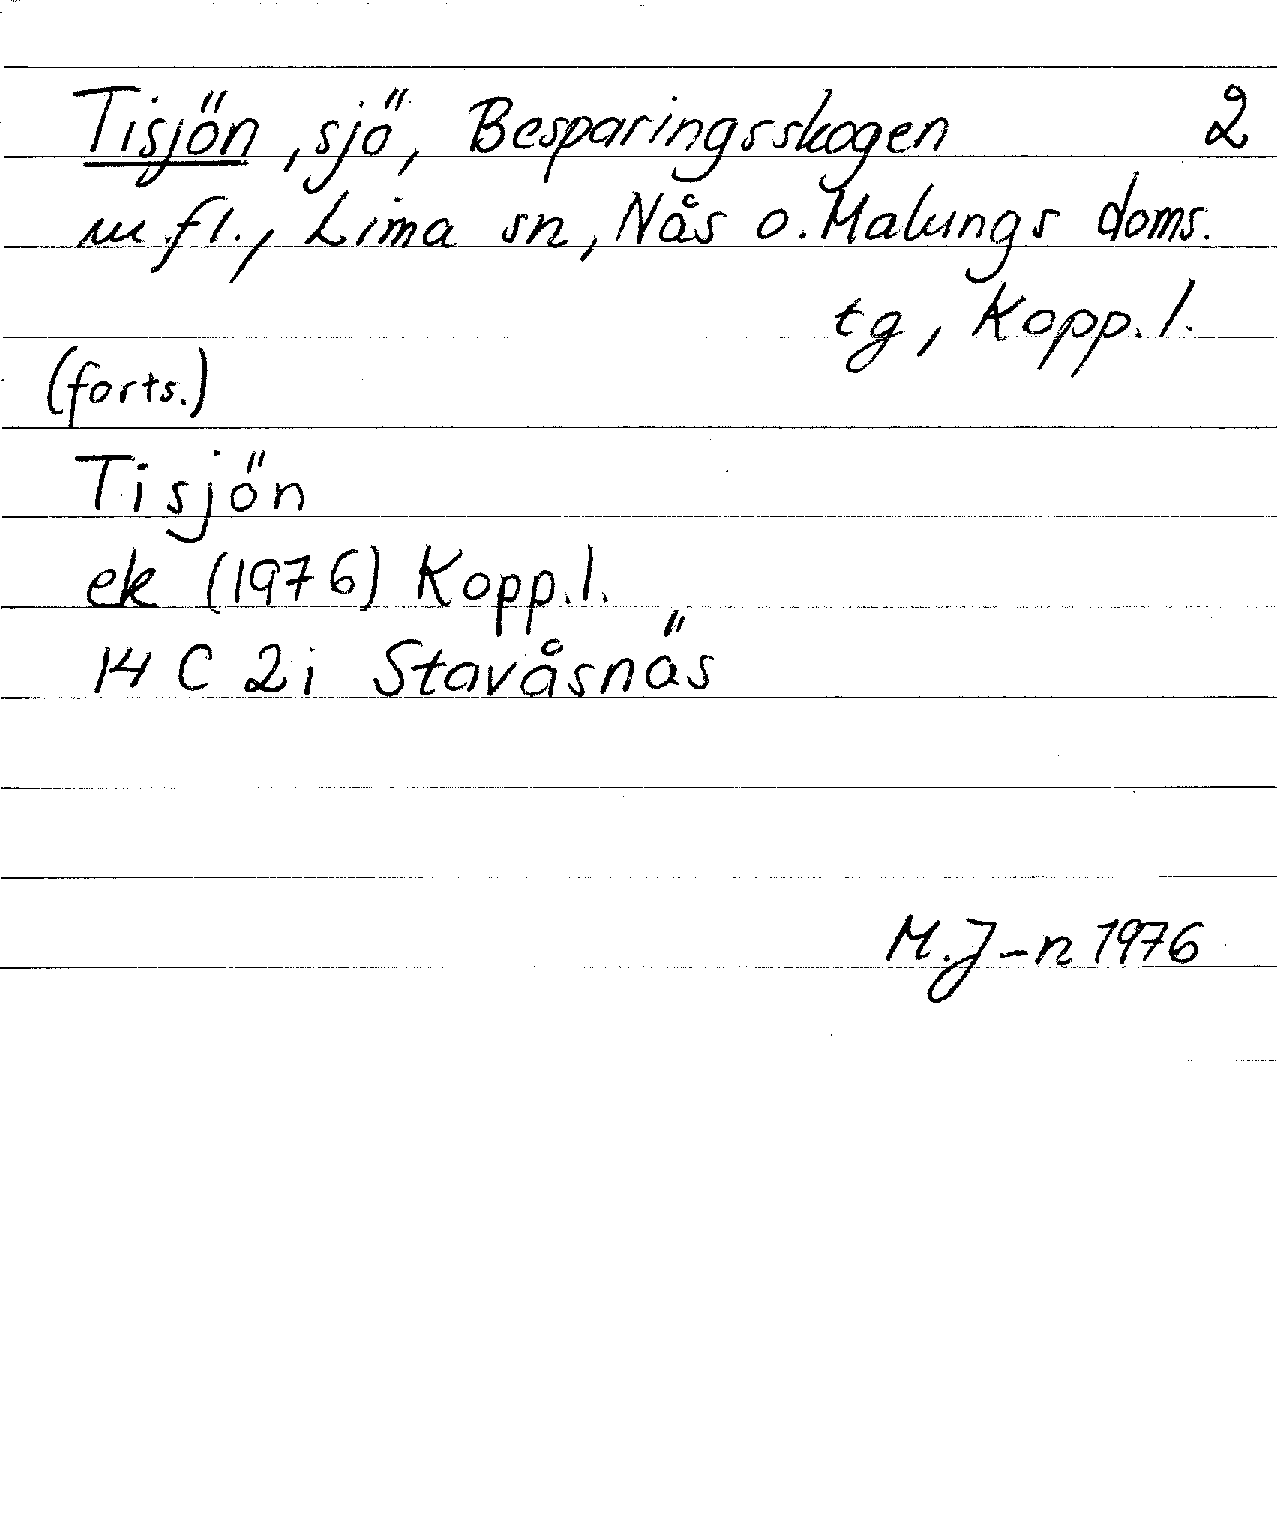 Tisjön, sjö, Besparingsskogen 2
m. fl., Lima sn, Nås o. Malungs doms.
tg, Kopp. l.
(forts.)
Tisjön
ek (1976) Kopp. l.
14 C 2i Stavåsnäs
M. J-n 1976